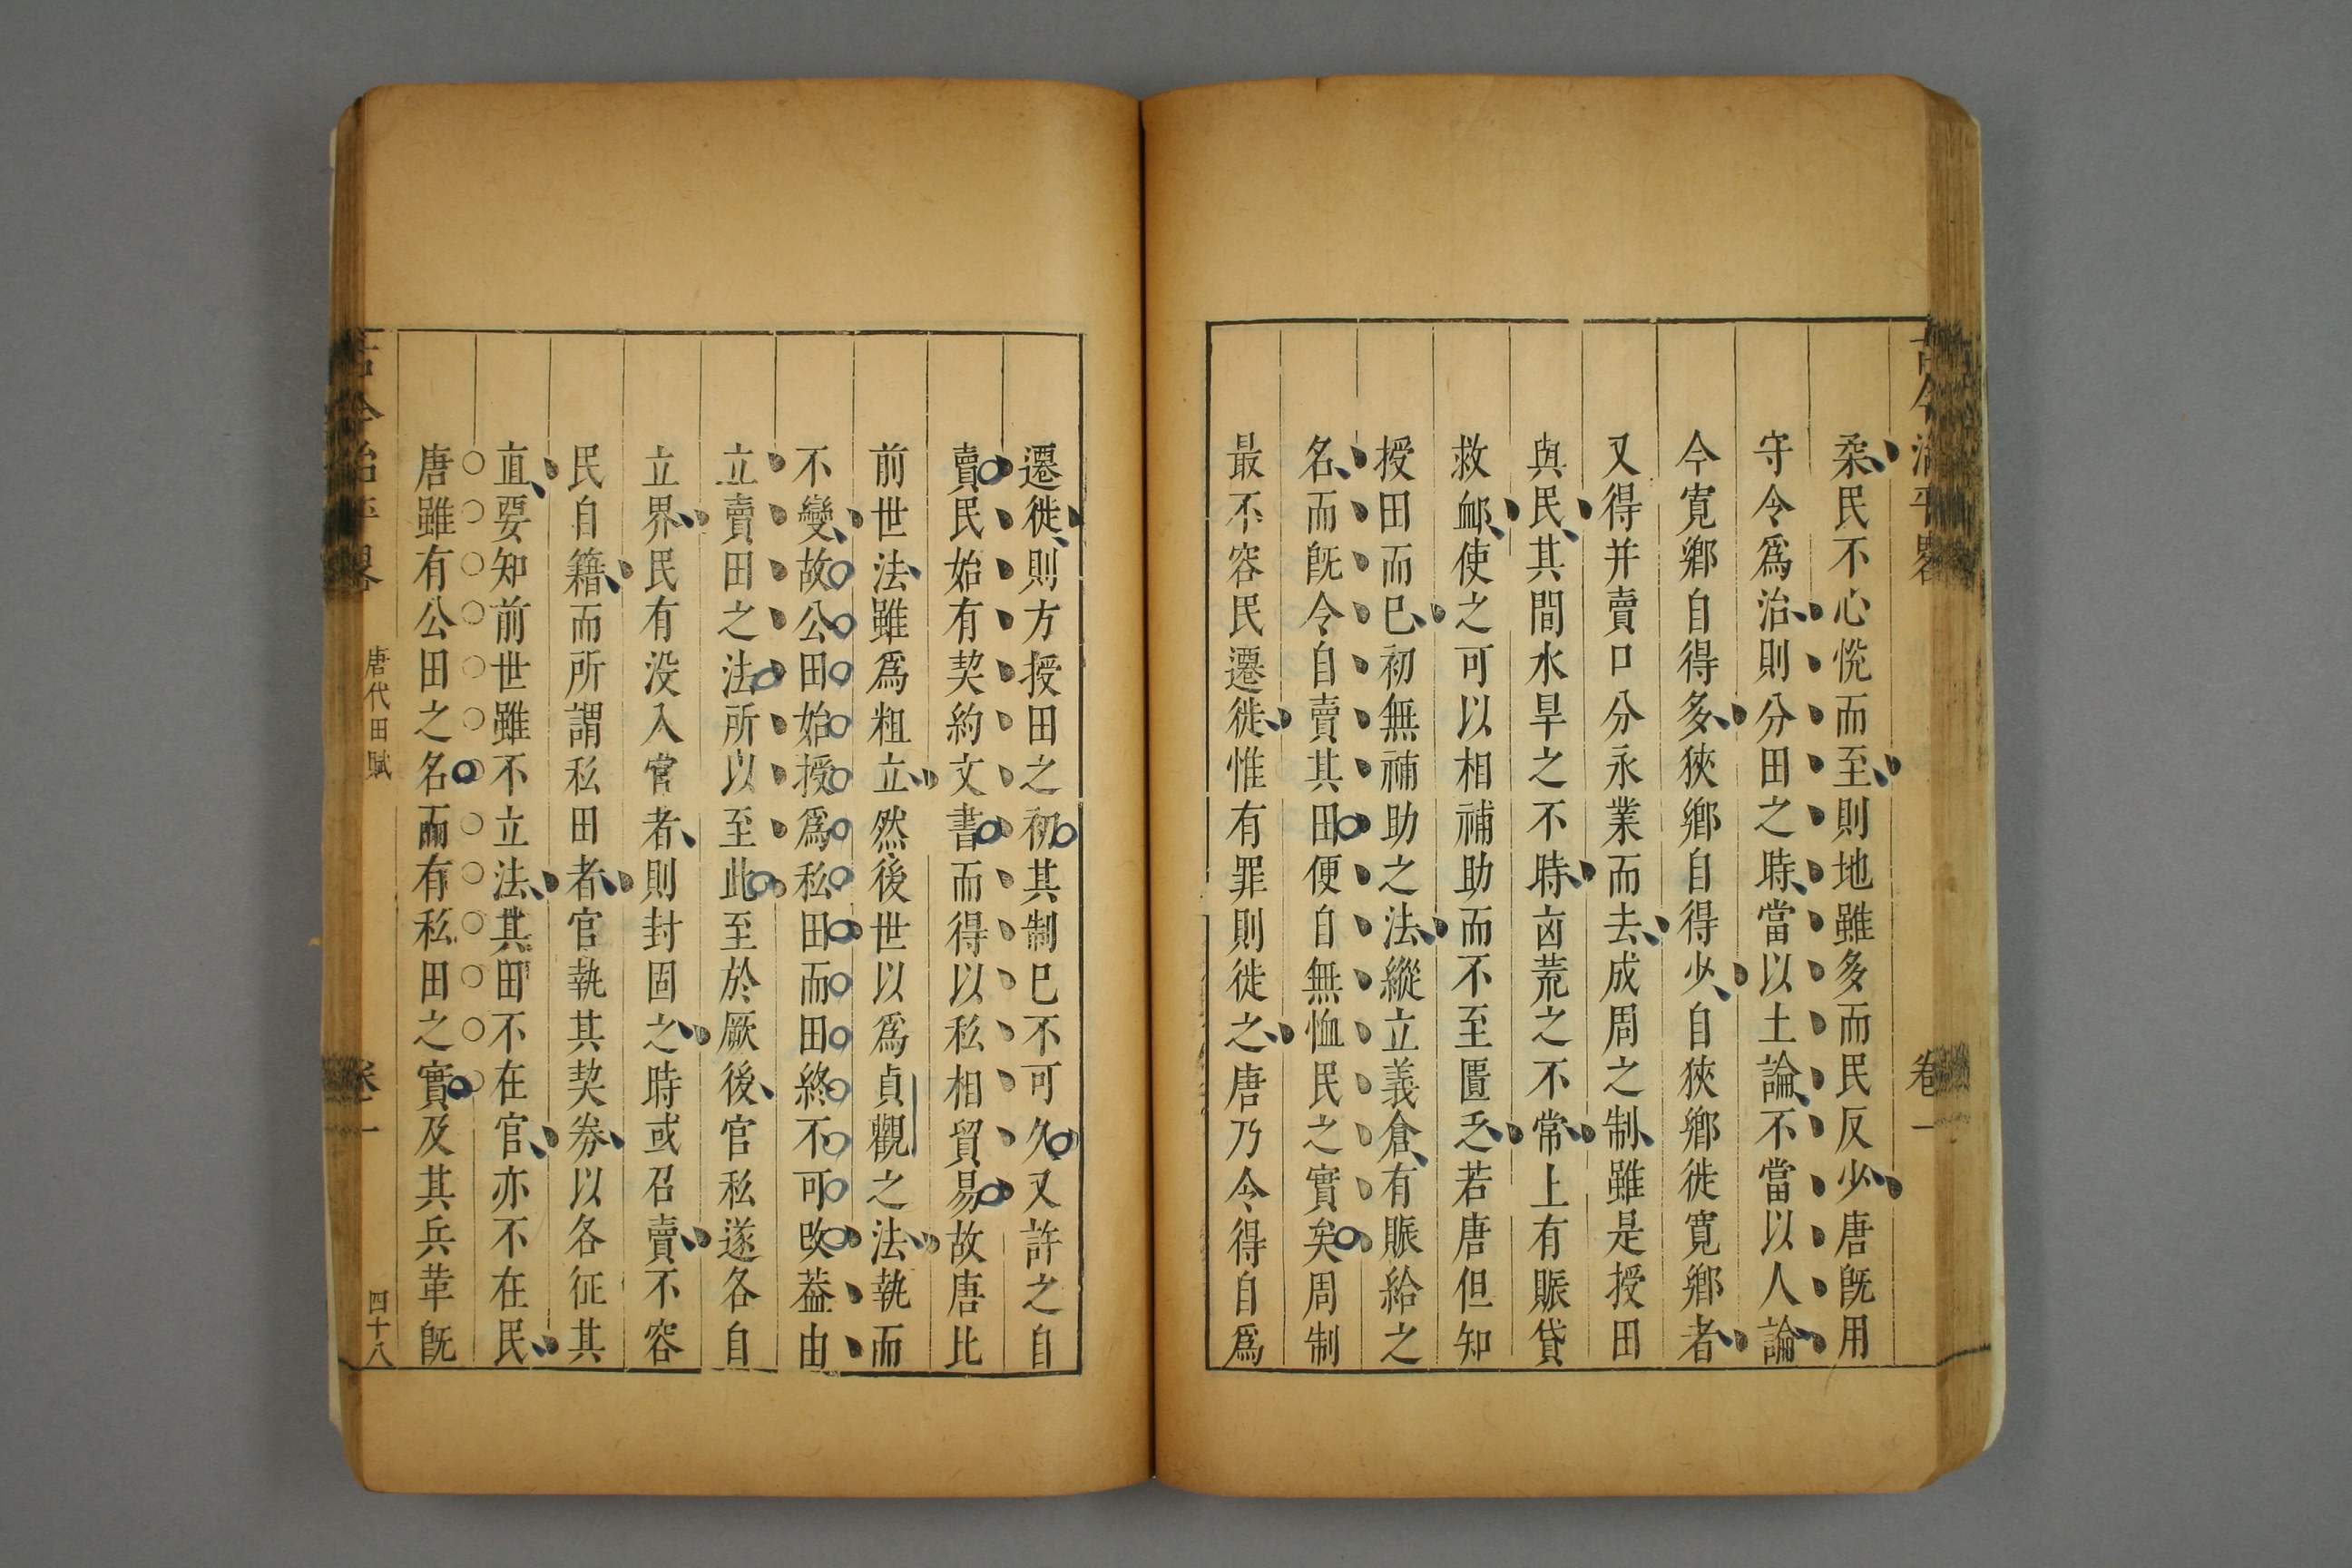 古今治平畧
卷一
柔民不心悅而至則地雖多而民反少唐旣用
守令爲治則分田之時當以土論不當以人論
今寛鄉自得多狹鄉自得少自狹鄉徙寛鄉者
又得并賣口分永業而去成周之制雖是授田
與民其間水旱之不時凶荒之不常上有賑貸
救䘏使之可以相補助而不至匱乏若唐但知
授田而已初無補助之法縱立義倉有賑給之
名而旣令自賣其田便自無恤民之實矣周制
最不容民遷徙惟有罪則徙之唐乃令得自爲
遷徙則方授田之初其制已不可久又許之自
賣民始有契約文書而得以私相貿易故唐比
前世法雖爲粗立然後世以爲貞觀之法執而
不變故公田始授爲私田而田終不可改葢由
立賣田之法所以至此至於厥後官私遂各自
立界民有没入官者則封固之時或召賣不容
民自籍而所謂私田者官執其契券以各征其
直要知前世雖不立法其田不在官亦不在民
唐雖有公田之名而有私田之實及其兵革旣
古今治平畧
唐代田賦
卷一
四十八